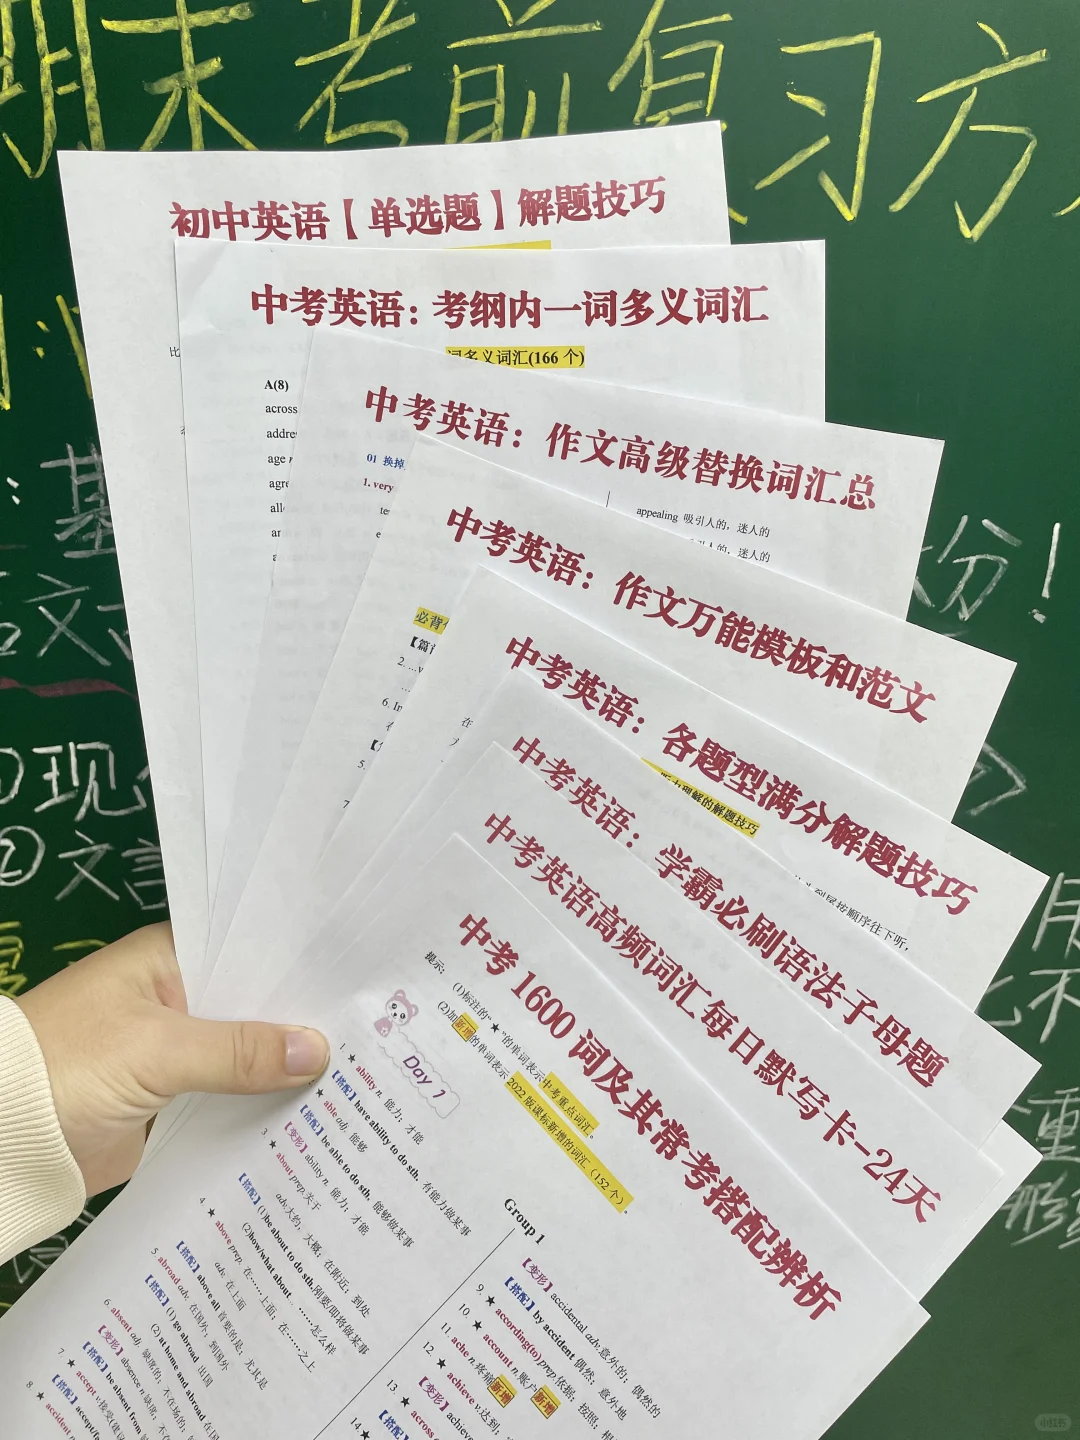 期末考前复习方
初中英语【单选题】解题技巧
中考英语：考纲内一词多义词汇
词多义词汇(166 个)
A(8)
across
addre
age n
agre
all
an
a
中考英语：作文高级替换词汇总
01 换掉
1. very
te
e
appealing 吸引人的，迷人的
引人的，迷人的
中考英语：作文万能模板和范文
必背
【篇
2. ...v
...
6. In
5.
7
中考英语：各题型满分解题技巧
听力理解的解题技巧
到尾按顺序往下听，
中考英语：学霸必刷语法子母题
中考英语高频词汇每日默写卡-24天
中考 1600 词及其常考搭配辨析
提示：
(1)标注的“★”的单词表示中考重点词汇。
(2)加新增的单词表示 2022 版课标新增的词汇（152 个）。
Day 1
Group 1
1. ★ ability n. 能力；才能
【搭配】have ability to do sth. 有能力做某事
2. ★ able adj. 能够
【搭配】be able to do sth. 能够做某事
【变形】ability n. 能力；才能
3. ★ about prep.关于
adv.大约，大概；在附近；到处
【搭配】(1)be about to do sth.刚要/即将做某事
(2)how/what about……怎么样
4. ★ above prep. 在……上面；在……之上
adv. 在上面
【搭配】above all 首要的是；尤其是
5. abroad adv. 在国外；到国外
【搭配】(1) go abroad 出国
(2) at home and abroad 在国
6. absent adj. 缺席的；不在场的；
【变形】absence n. 缺席，不在
【搭配】be absent from 缺
7. ★ accept v.接受(建议
【搭配】accept/fa
8. ★ accident
【变形】accidental adv.意外的；偶然的
【搭配】by accident 偶然；意外地
9. ★ according(to) prep.依据；按照；根
10. ★ account n.账户新增
11. ache n.疼痛新增
12. ★ achieve v.达到；
【变形】achieve
13. ★ across
【搭配】
14. ★
份！
①现
②文言
重
形
小红书